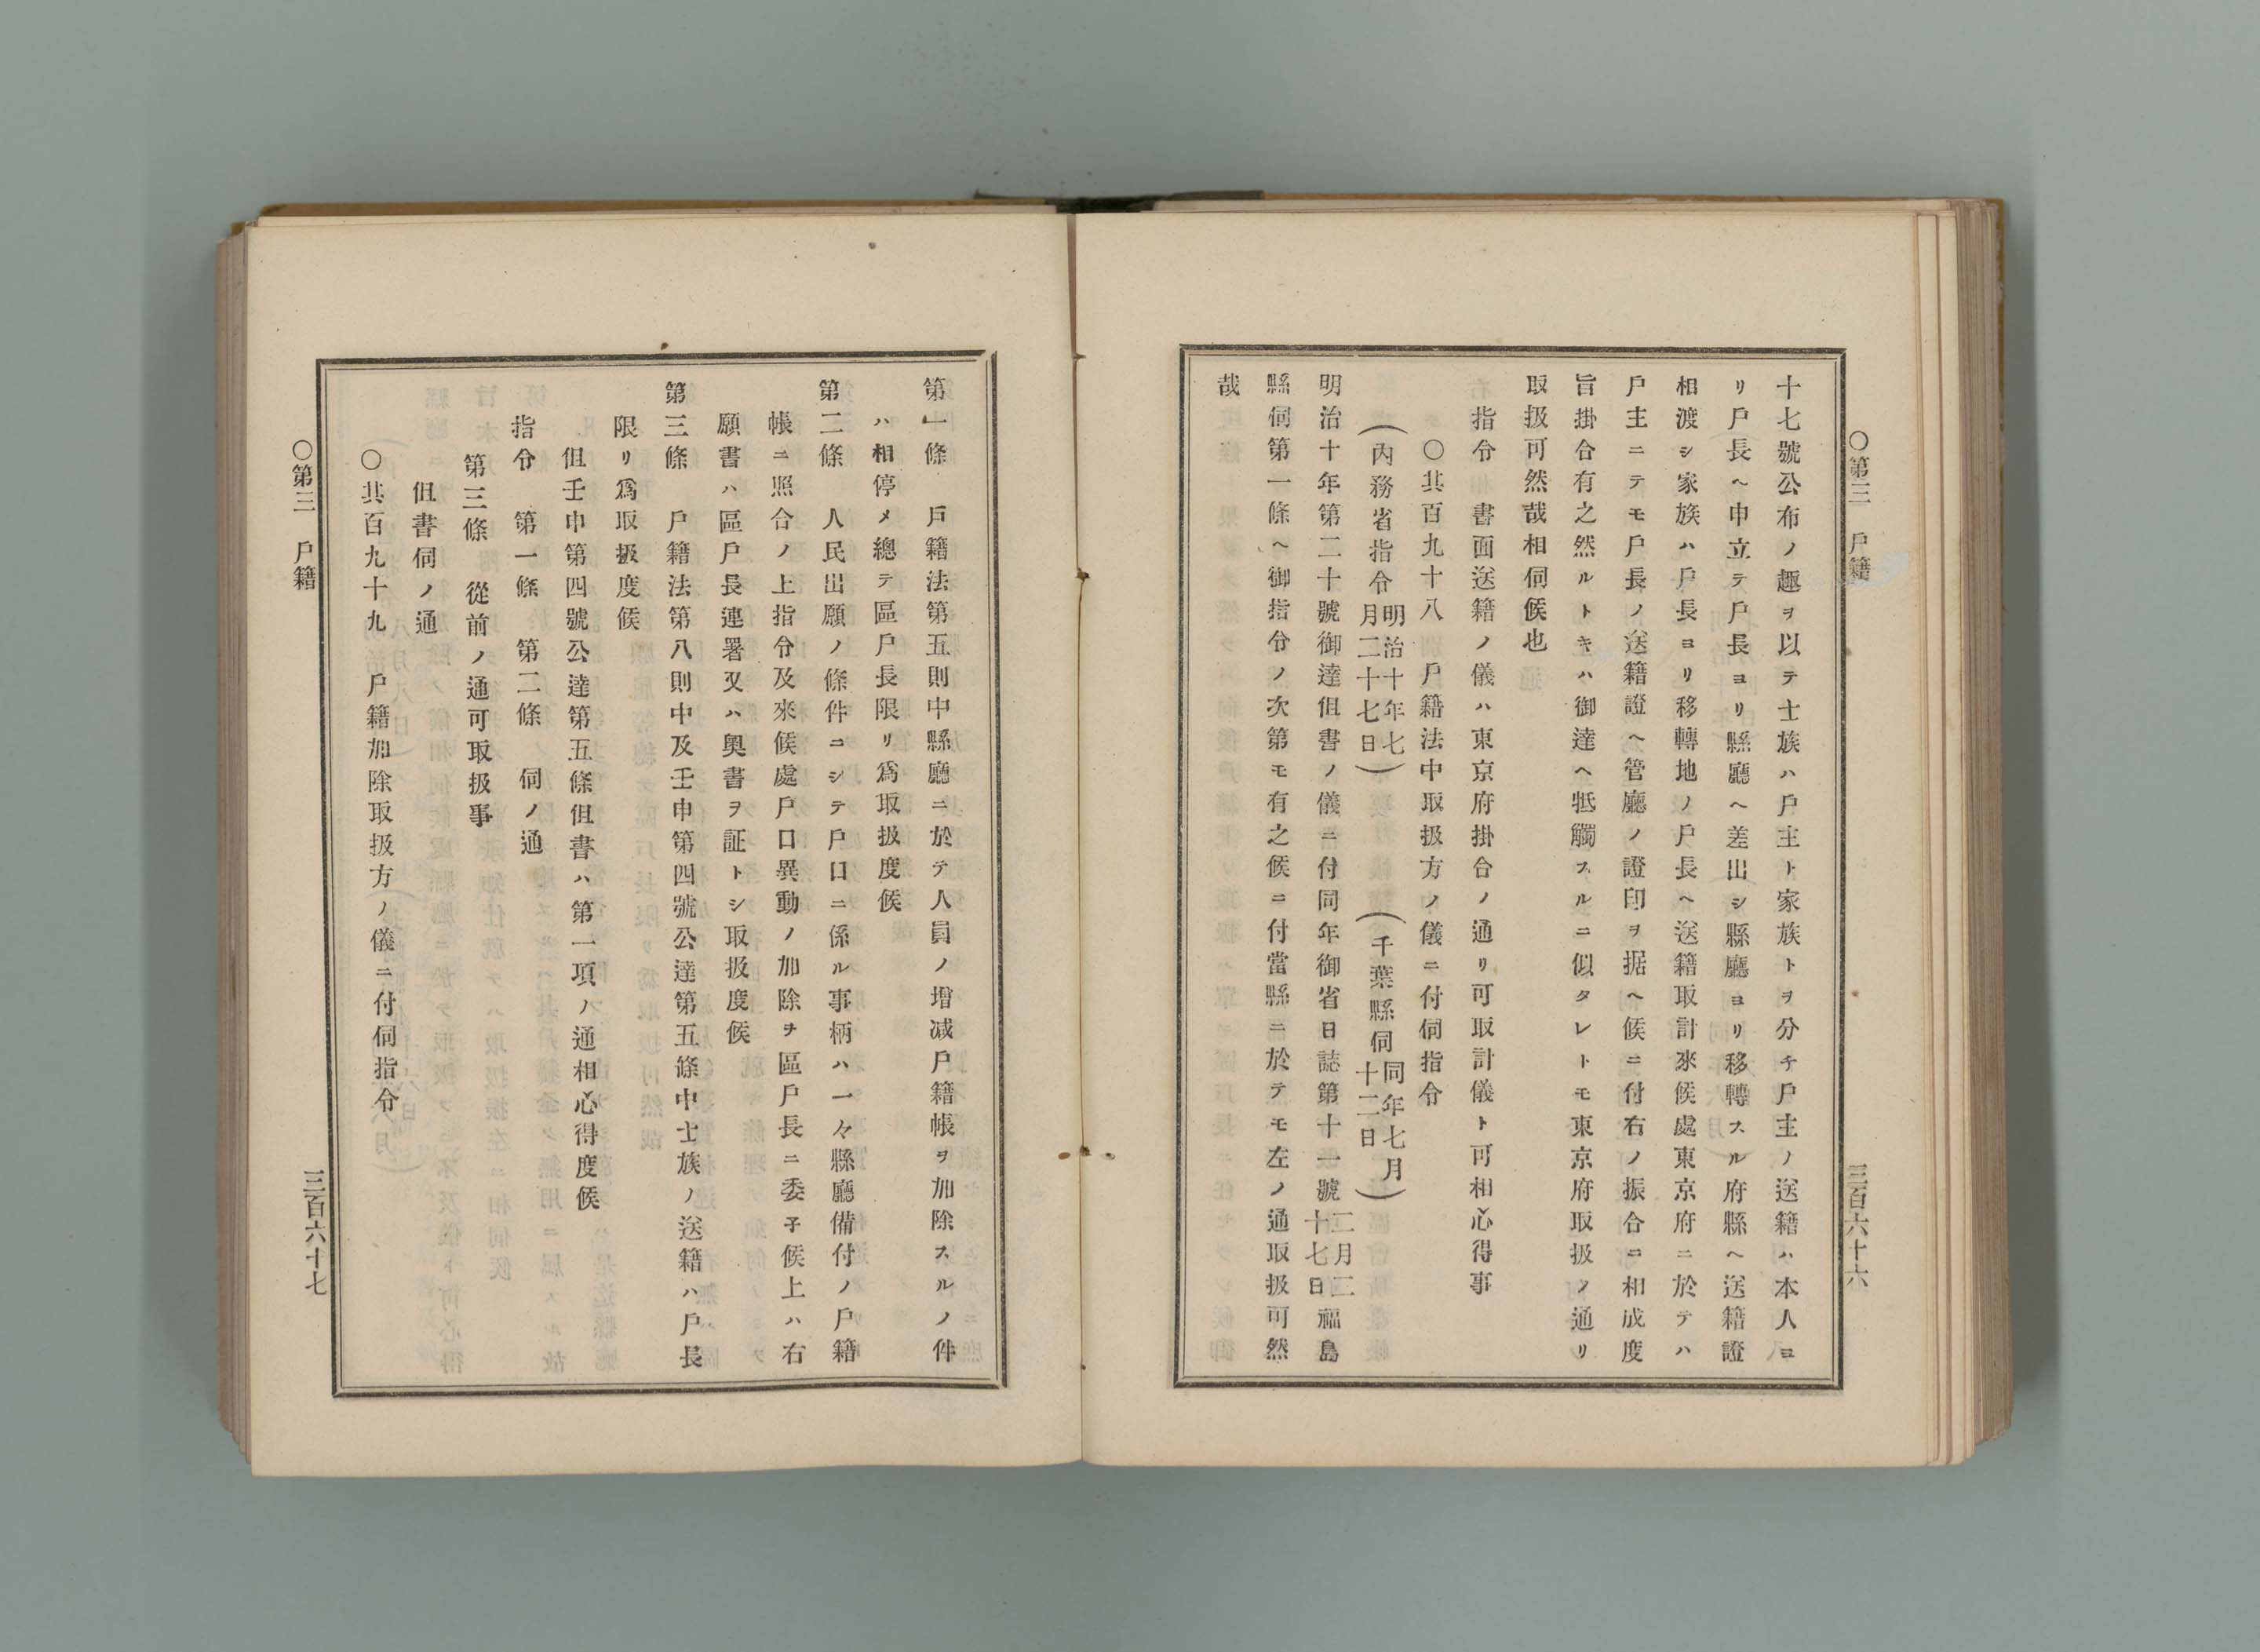 ○第三　戶籍
三百六十六
十七號公布ノ趣ヲ以テ士族ハ戶主ト家族トヲ分チ戶主ノ送籍ハ本人ヨ
リ戶長ヘ申立テ戶長ヨリ縣廳ヘ差出シ縣廳ヨリ移轉スル府縣ヘ送籍證
相渡シ家族ハ戶長ヨリ移轉地ノ戶長ヘ送籍取計來候處東京府ニ於テハ
戶主ニテモ戶長ノ送籍證ヘ管廳ノ證印ヲ据ヘ候ニ付右ノ振合ニ相成度
旨掛合有之然ルトキハ御達ヘ牴觸スルニ似タレトモ東京府取扱ノ通リ
取扱可然哉相伺候也
指令　書面送籍ノ儀ハ東京府掛合ノ通リ可取計儀ト可相心得事
○其百九十八　戶籍法中取扱方ノ儀ニ付伺指令
（內務省指令明治十年七月二十七日）　（千葉縣伺同年七月十二日）
明治十年第二十號御達但書ノ儀ニ付同年御省日誌第十一號二月二十七日福島
縣伺第一條ヘ御指令ノ次第モ有之候ニ付當縣ニ於テモ左ノ通取扱可然
哉
第一條　戶籍法第五則中縣廳ニ於テ人員ノ增减戶籍帳ヲ加除スルノ件
ハ相停メ總テ區戶長限リ爲取扱度候
第二條　人民出願ノ條件ニシテ戶口ニ係ル事柄ハ一々縣廳備付ノ戶籍
帳ニ照合ノ上指令及來候處戶口異動ノ加除ヲ區戶長ニ委子候上ハ右
願書ハ區戶長連署又ハ奧書ヲ証トシ取扱度候
第三條　戶籍法第八則中及壬申第四號公達第五條中士族ノ送籍ハ戶長
限リ爲取扱度候
但壬申第四號公達第五條但書ハ第一項ノ通相心得度候
指令　第一條　第二條　伺ノ通
第三條　從前ノ通可取扱事
但書伺ノ通
○其百九十九　戶籍加除取扱方ノ儀ニ付伺指令
○第三　戶籍
三百六十七